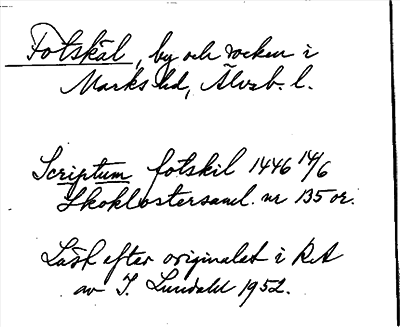 Fotskäl, by och socken i
Marks hd, Älvsb. l.
Scriptum fotskil 1446 14/6
Skoklostersaml. nr 135 or.
Läst efter originalet i RA
av I. Lundahl 1952.